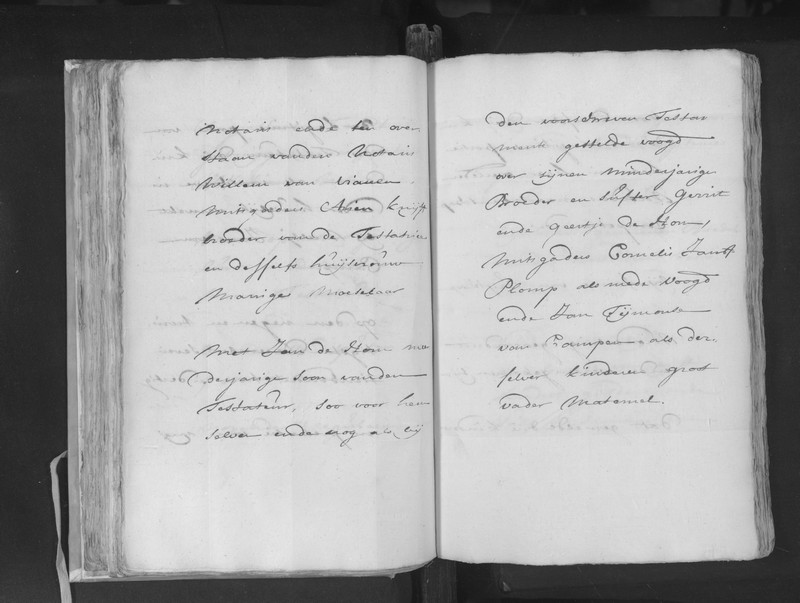 Notaris ende ten over
staan vanden Notaris
Willem van Vianen
mitsgaders Arien
broeder van de Testatrice
en desselfs huijsvrouw
Marrige
Met Jan de Hon mee
derjarige soon vanden
Testateur, soo voor hem
selven ende nog als bij
den voorschreven Testa
mente gestelde voogd
over sijnen minderjarige
Broeder en suster Gerrit
ende geertje de Hon,
mitsgaders Cornelis Jansz
Plomp als mede voogd
ende Jan
van Campen als der
selver kinderen groot
vader maternel.